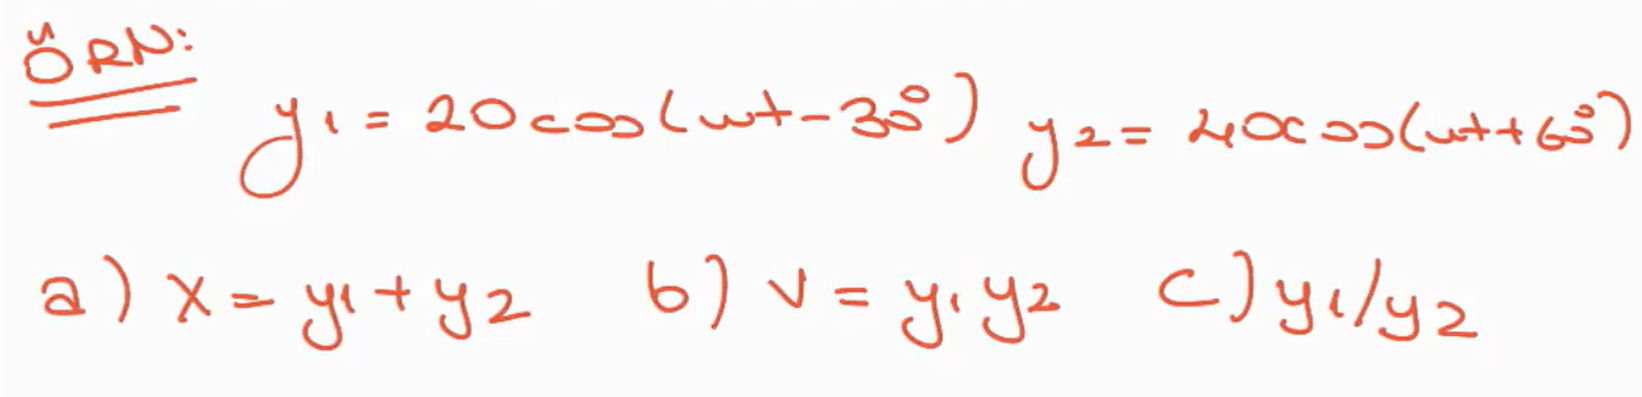 ÖRN:
y1 = 20cos(wt-30°) y2 = 40cos(wt+60°)
a) x = y1+y2 b) v = y1y2 c) y1/y2